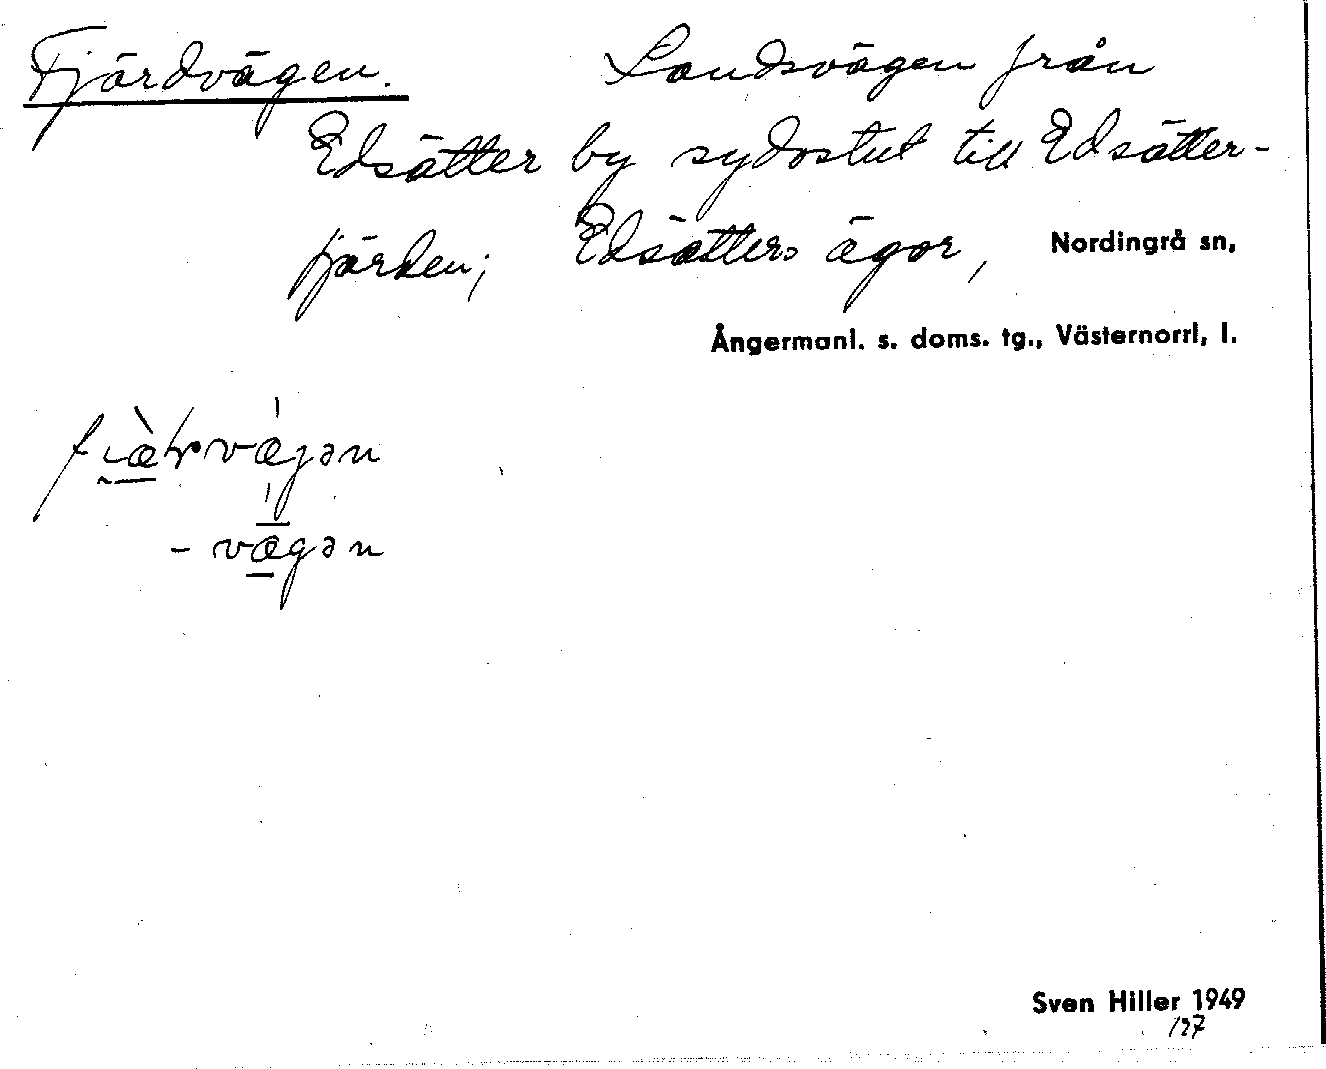 Fjärdvägen. Landsvägen från
Edsätter by sydostut till Edsätter-
fjärden; Edsätters ägor, Nordingrå sn,
Ångermanl. s. doms. tg., Västernorrl. l.
-vægən
Sven Hiller 1949